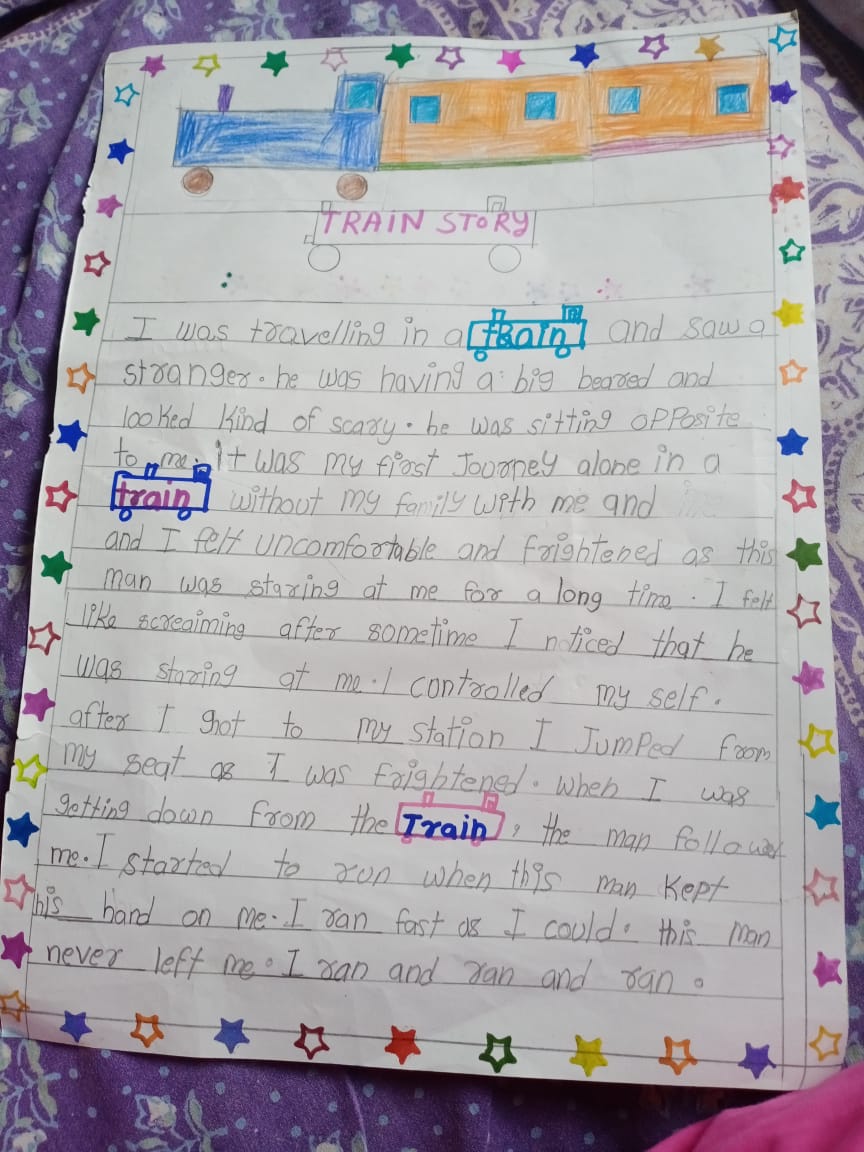 TRAIN STORY
I was travelling in a tRain and saw a
stranger. he was having a big beared and
looked kind of scary. he was sitting opposite
to me. it was my first Journey alone in a
train without my family with me and
and I felt uncomfortable and frightened as this
man was staring at me for a long time. I felt
like screaiming after sometime I noticed that he
was staring at me. I controlled my self.
after I got to my station I Jumped from
my seat as I was frightened. when I was
getting down from the Train, the man follow
me. I started to run when this man kept
his hand on me. I ran fast as I could. this man
never left me. I ran and ran and ran.